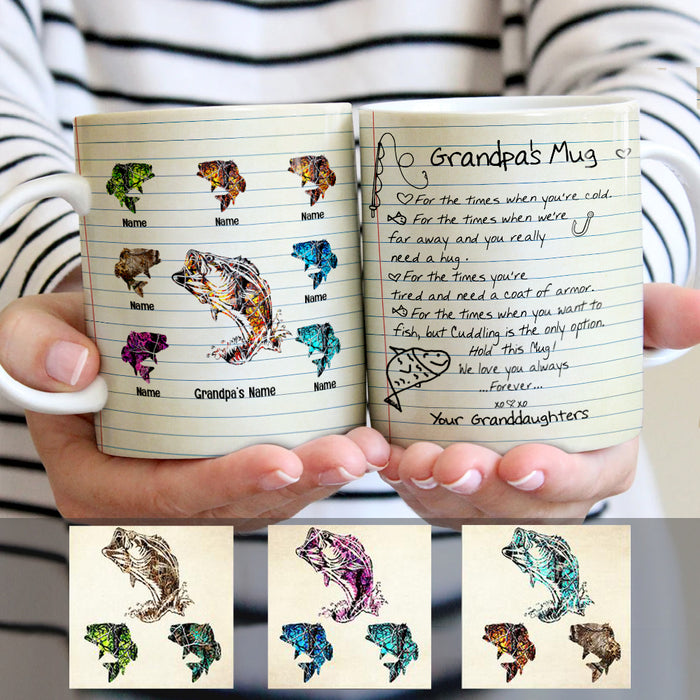 Name
Name
Name
Name
Name
Name
Name
Grandpa's Name
Grandpa's Mug
For the times when you're cold.
For the times when we're
far away and you really
need a hug.
For the times you're
tired and need a coat of armor.
For the times when you want to
fish, but Cuddling is the only option.
Hold this Mug!
We love you always
...Forever...
xo xo
Your Granddaughters